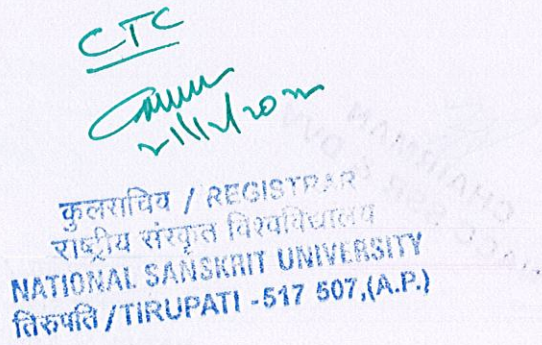 CTC
21/12/2022
कुलसचिव / REGISTRAR
राष्ट्रीय संस्कृत विश्वविद्यालय
NATIONAL SANSKRIT UNIVERSITY
तिरुपति / TIRUPATI - 517 507, (A.P.)
CHAIRMAN